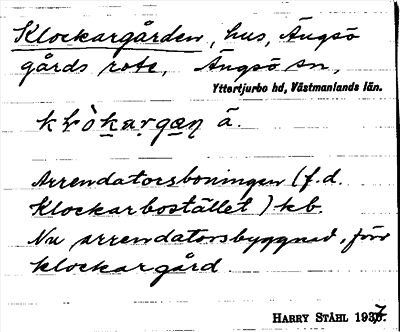 Klockargården, hus, Ängsö
gårds rote, Ängsö sn,
Yttertjurbo hd, Västmanlands län.
ä.
Arrendatorsboningen (f.d.
Klockarbostället) kb.
Nu arrendatorsbyggnad, förr
klockargård
HARRY STÅHL 1937.